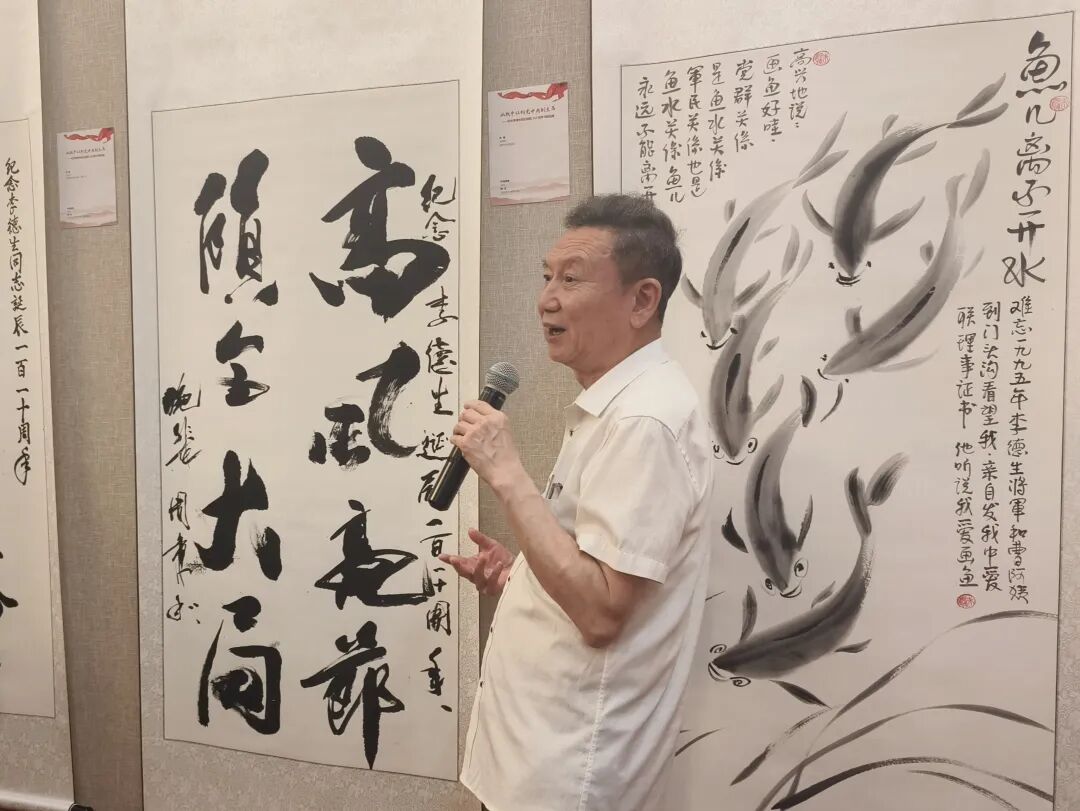 纪念李德生同志诞辰一百一十周年
纪念 李德生 诞辰一百一十周年
高风亮节
顾全大局
魚儿离不开水
难忘一九九五年李德生将軍和曹阿
到门头沟看望我.亲自发我中爱
联理事证书 他听说我爱画鱼
高兴地说：
画鱼好哇，
党群关係
是鱼水关係
軍民关係也是
鱼水关係鱼儿
永远不能离开